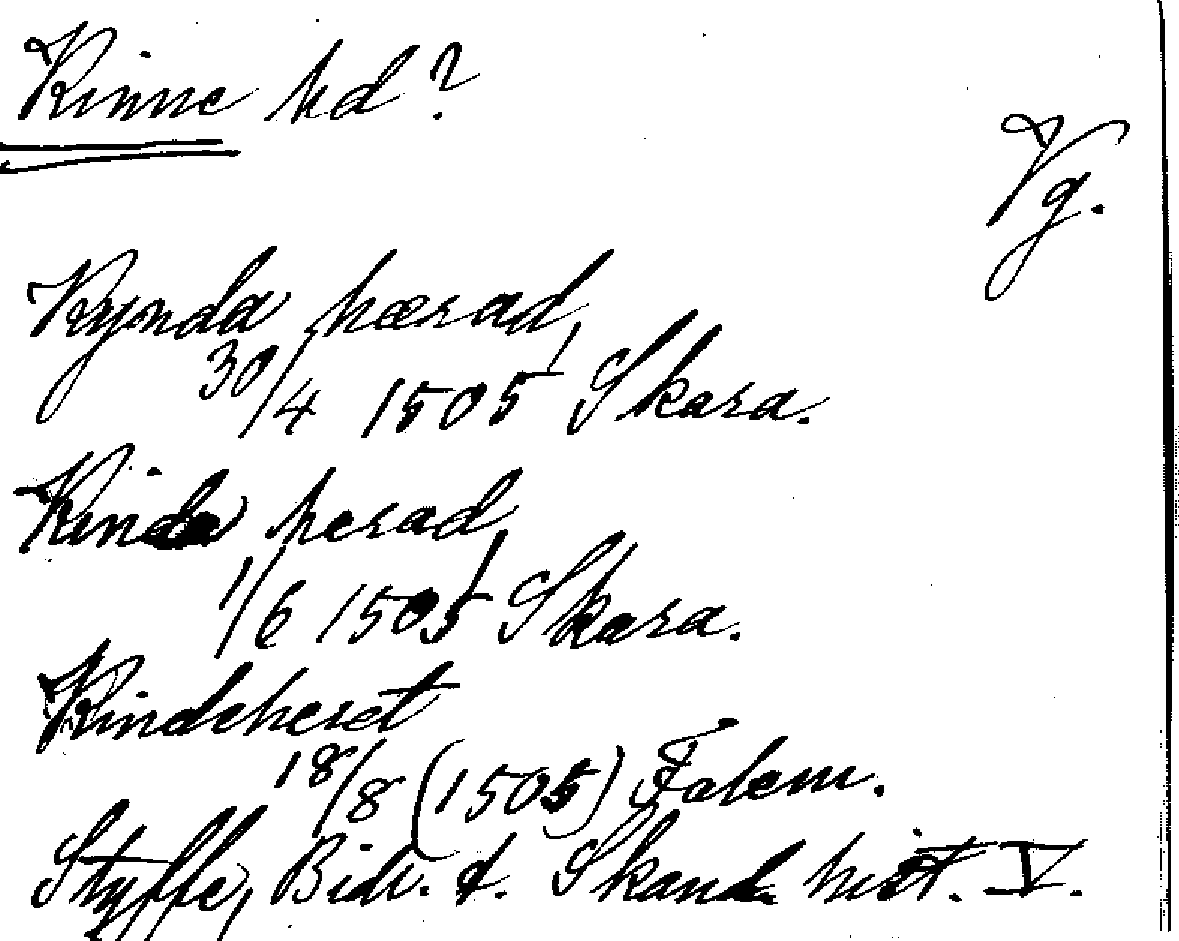 Kinne hd?
Vg.
Kynda hærad,
30/4 1505 Skara.
Kinda herad,
1/6 1505 Skara.
Kindeheret
18/8 (1505) Falem.
Styffe, Bidr. t. Skand. hist. V.